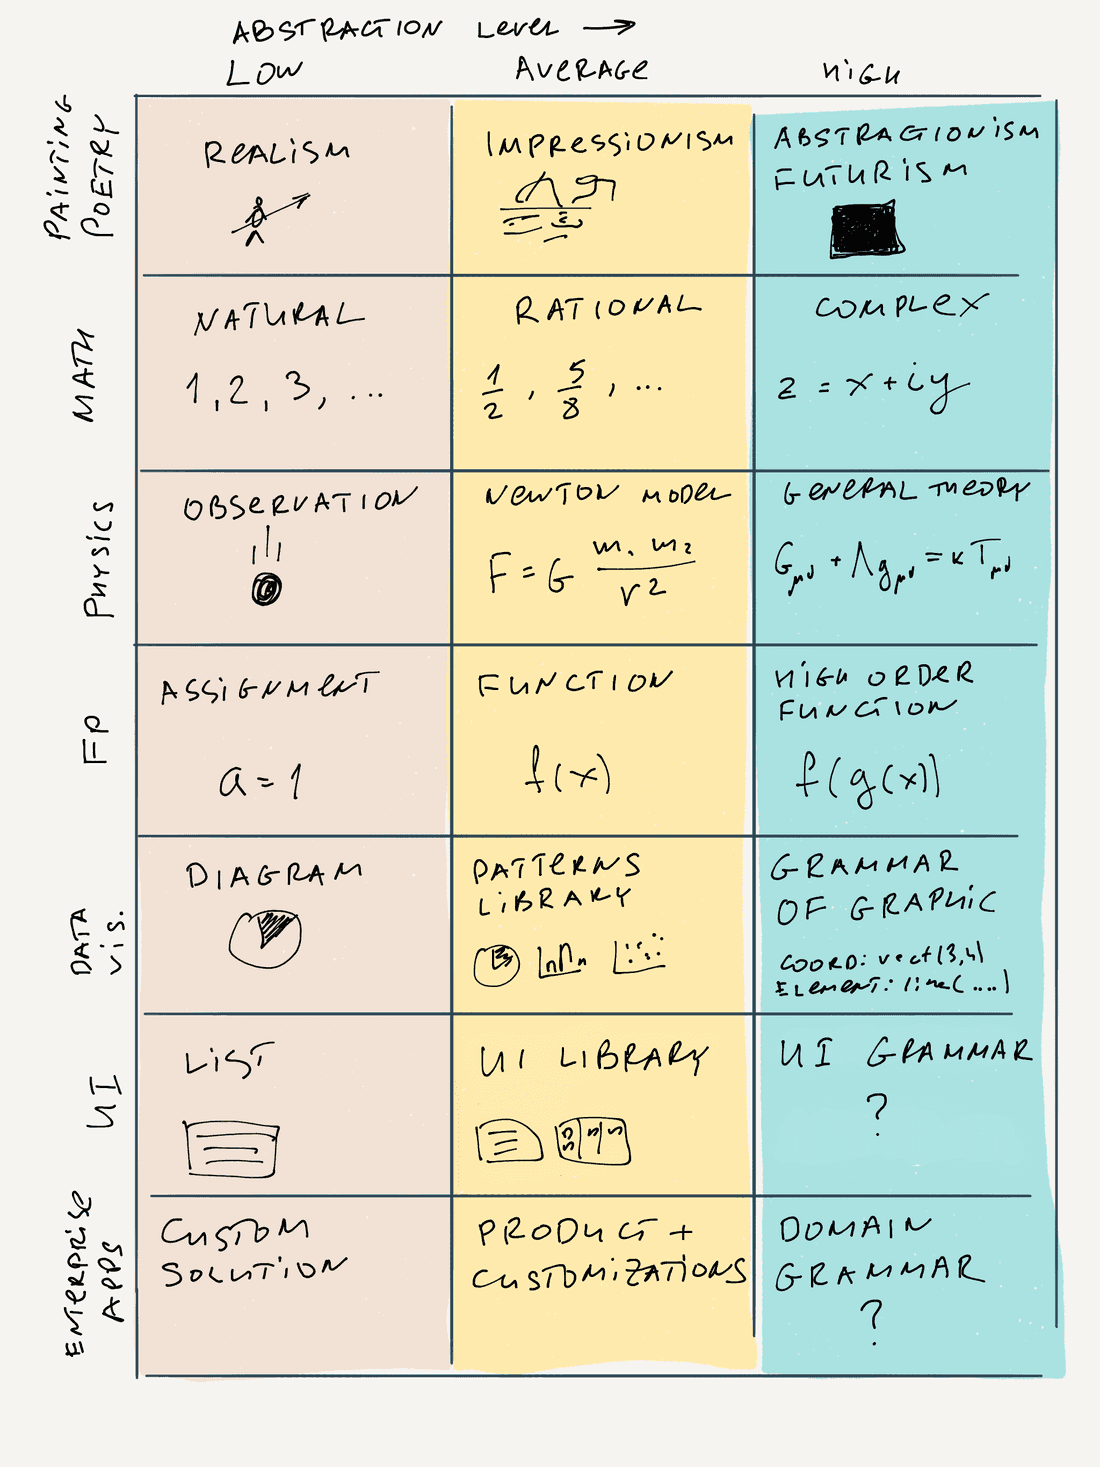 ABSTRACTION LEVEL →
LOW AVERAGE HIGH
PAINTING
POETRY
REALISM
IMPRESSIONISM
ABSTRACTIONISM
FUTURISM
MATH
NATURAL
1, 2, 3, ...
RATIONAL
1/2, 5/8, ...
COMPLEX
z = x + iy
PHYSICS
OBSERVATION
NEWTON MODEL
F = G m₁ m₂ / r²
GENERAL THEORY
Gμν + Λgμν = κTμν
FP
ASSIGNMENT
a = 1
FUNCTION
f(x)
HIGH ORDER
FUNCTION
f(g(x))
DATA
VIS.
DIAGRAM
PATTERNS
LIBRARY
GRAMMAR
OF GRAPHIC
COORD: vect(3,4)
ELEMENT: line(....)
UI
LIST
UI LIBRARY
UI GRAMMAR
?
ENTERPRISE
APPS
CUSTOM
SOLUTION
PRODUCT +
CUSTOMIZATIONS
DOMAIN
GRAMMAR
?